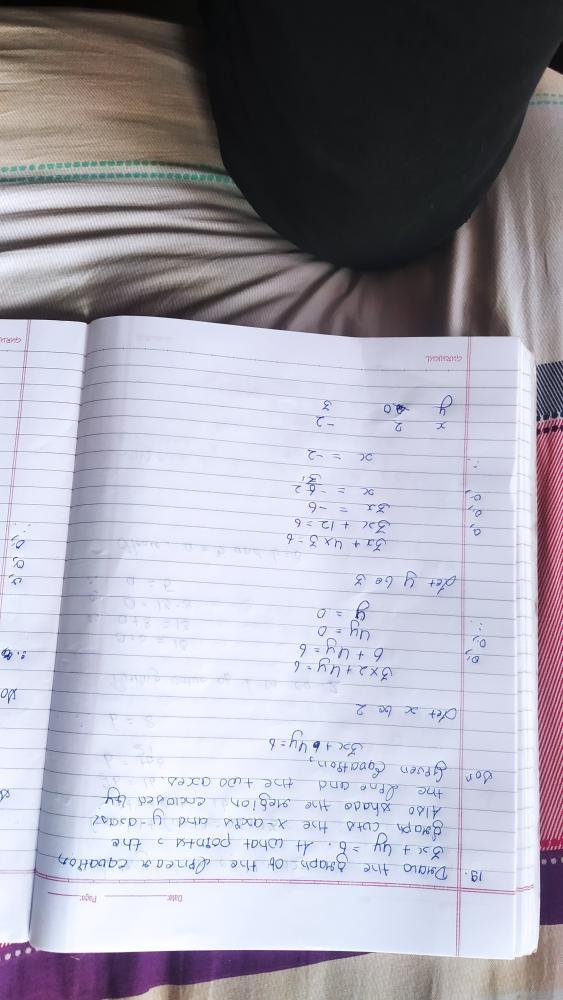 Date: Page:
19. Draw the graph of the linear equation
3x + 4y = 6. At what points, the
graph cuts the x-axis and y-axis?
Also shade the region enclosed by
the line and the two axes.
Sol Given Equation,
3x + 4y = 6
Let x be 2
3 x 2 + 4y = 6
or, 6 + 4y = 6
or, 4y = 0
∴ y = 0
Let y be 3
3x + 4 x 3 = 6
or, 3x + 12 = 6
or, 3x = -6
or, x = -6 2
3 1
∴ x = -2
x 2 -2
y 0 3
GURUKUL
GURUKUL